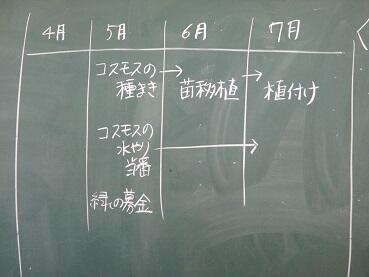 4月 5月 6月 7月
コスモスの
種まき → 苗移植 → 植付け
コスモスの
水やり
当番
緑の募金